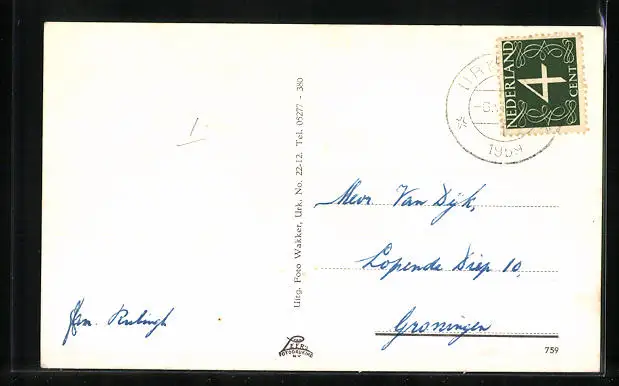 URK
1959
NEDERLAND
4
CENT
Uitg. Foto Wakker, Urk. No. 22-12. Tel. 05277 - 380
Mevr. Van Dijk,
Lopende Diep 10,
Groningen
Fam.
FOTODRUKKERIJ
759